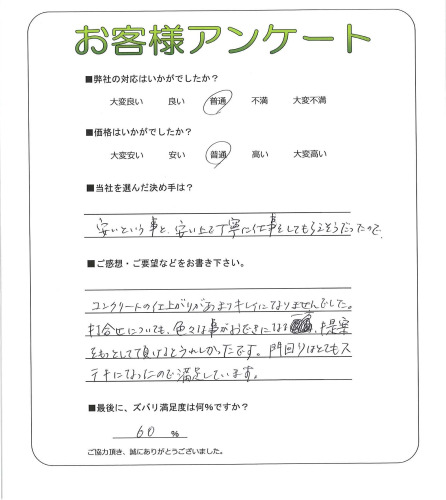 お客様アンケート
■弊社の対応はいかがでしたか?
大変良い 良い 普通 不満 大変不満
■価格はいかがでしたか?
大変安い 安い 普通 高い 大変高い
■当社を選んだ決め手は?
安いという事と、安い上で丁寧に仕事をしてもらえそうだったので。
■ご感想・ご要望などをお書き下さい。
コンクリートの仕上がりがあまりキレイになりませんでした。
打合せについても、色々な事がおできになる 、提案
をもっとして頂けるとうれしかったです。門回りはとてもス
テキになったので満足しています。
■最後に、ズバリ満足度は何%ですか?
60 %
ご協力頂き、誠にありがとうございました。